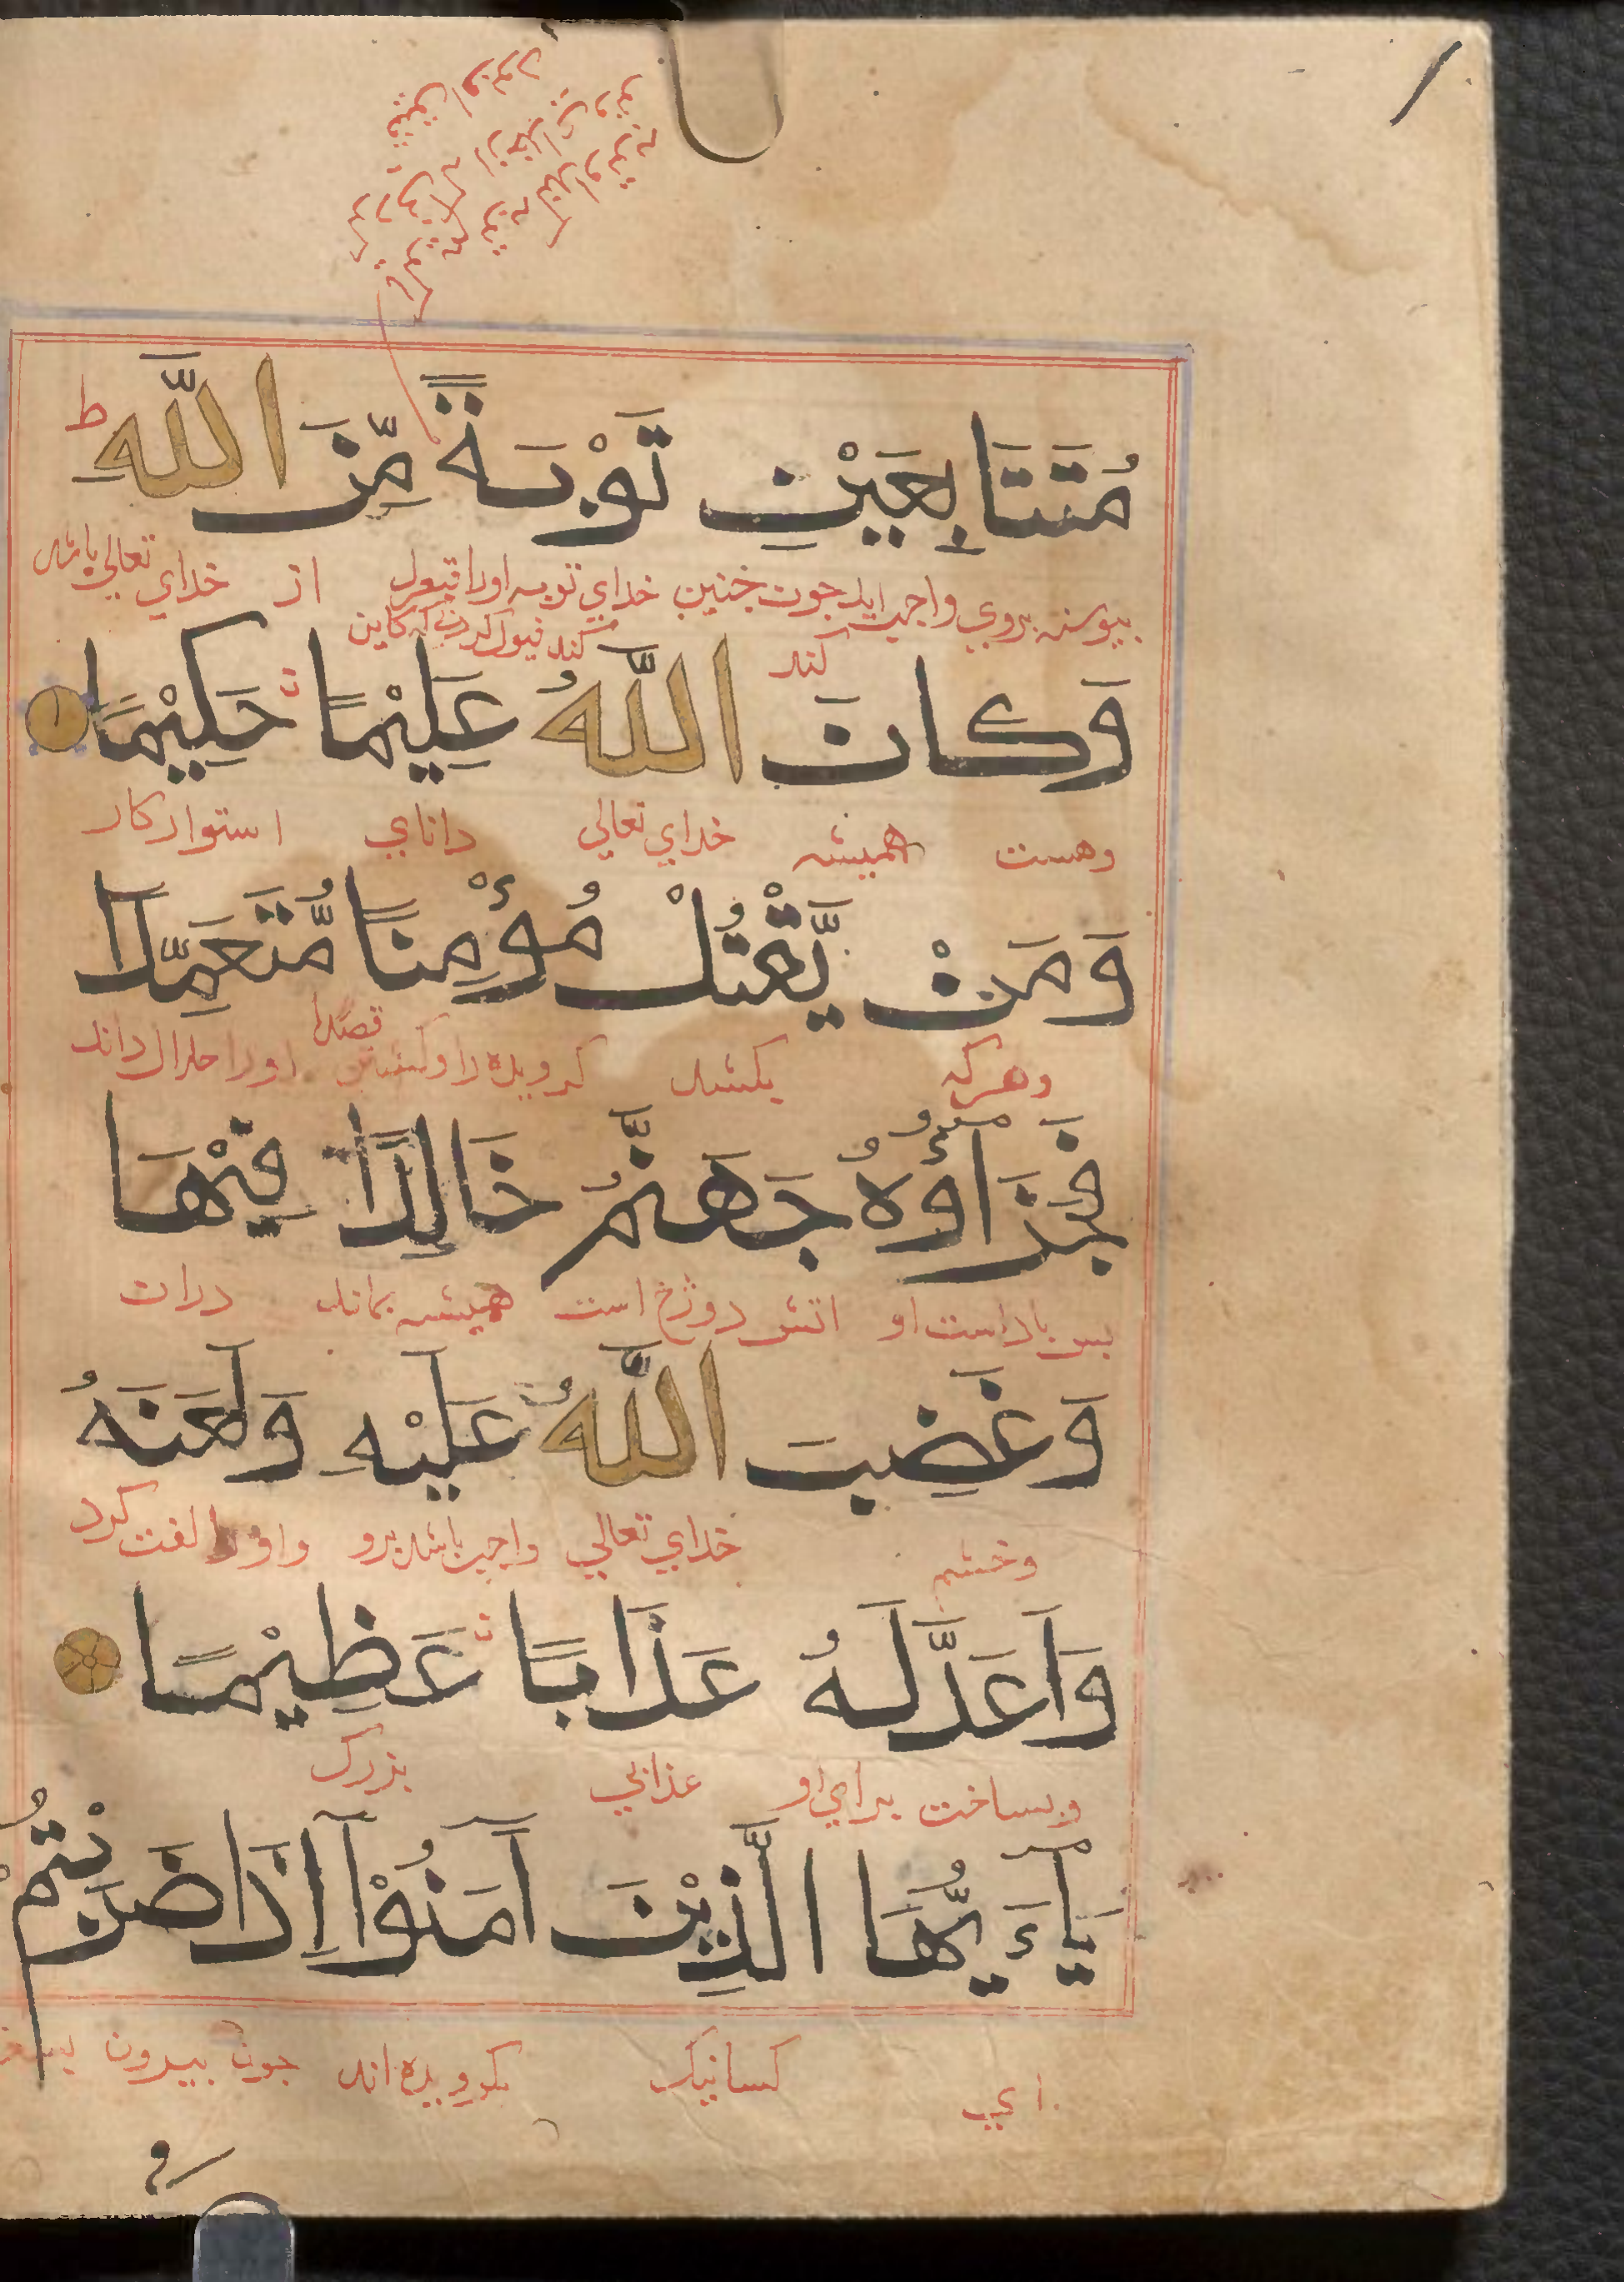 مُتَتَابِعَيْنِ تَوْبَةً مِّنَ اللّٰهِ ط
پیوسته بروي واجب ايد جون چنين خداي توبه اورا قبول از خداي تعالي باشد
كند
كند قبول كردني كه كاين
وَكَانَ اللّٰهُ عَلِيْمًا حَكِيْمًا
وهست هميشه خداي تعالي داناي استوار كار
وَمَنْ يَّقْتُلْ مُؤْمِنًا مُّتَعَمِّدًا
وهركه بكشد كرويده را وكشتن اورا حلال داند
قصدا
فَجَزَآؤُهُ جَهَنَّمُ خَالِدًا فِيْهَا
بس باداست او اتش دوزخ است هميشه بماند دران
وَغَضِبَ اللّٰهُ عَلَيْهِ وَلَعَنَهُ
وخشم خداي تعالي واجب باشد برو واورا لعنت كرد
وَاَعَدَّ لَهُ عَذَابًا عَظِيْمًا
وبساخت براي او عذابي بزرك
يَآءَيُّهَا الَّذِيْنَ آمَنُوْا اِذَا ضَرَبْتُمْ
اي كسانيك بكرويده اند جون بيرون